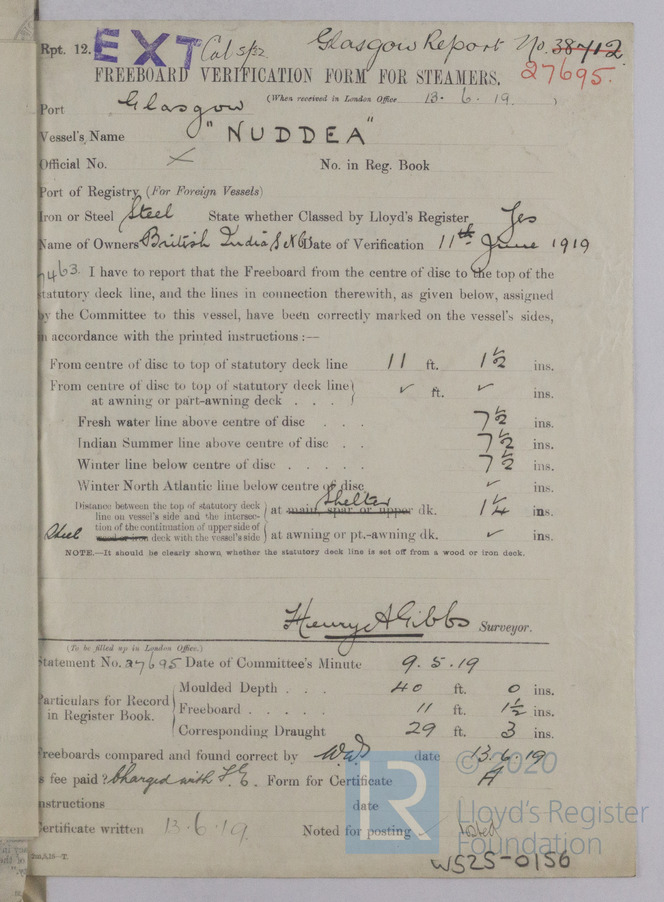 Rpt. 12. EXT Cal 5/32 Glasgow Report No. 38712
27695.
FREEBOARD VERIFICATION FORM FOR STEAMERS.
(When received in London Office 13. 6. 19.
Port Glasgow
Vessel's Name "NUDDEA"
Official No. No. in Reg. Book
Port of Registry (For Foreign Vessels)
Iron or Steel Steel State whether Classed by Lloyd's Register Yes
Name of Owners British India S N Co Date of Verification 11th June 1919
7463. I have to report that the Freeboard from the centre of disc to the top of the
statutory deck line, and the lines in connection therewith, as given below, assigned
by the Committee to this vessel, have been correctly marked on the vessel's sides,
in accordance with the printed instructions :—
From centre of disc to top of statutory deck line 11 ft. 1½ ins.
From centre of disc to top of statutory deck line
at awning or part-awning deck . . . ✓ ft. ✓ ins.
Fresh water line above centre of disc . . . 7½ ins.
Indian Summer line above centre of disc . . 7½ ins.
Winter line below centre of disc . . . . . 7½ ins.
Winter North Atlantic line below centre of disc ✓ ins.
Distance between the top of statutory deck
line on vessel's side and the intersec-
tion of the continuation of upper side of
Steel wood or iron deck with the vessel's side
Shelter
at main, spar or upper dk. 1¼ ins.
at awning or pt.-awning dk. ✓ ins.
NOTE.—It should be clearly shown whether the statutory deck line is set off from a wood or iron deck.
Henry A Gibbs Surveyor.
(To be filled up in London Office.)
Statement No. 27695 Date of Committee's Minute 9. 5. 19
Particulars for Record
in Register Book.
Moulded Depth . . . 40 ft. 0 ins.
Freeboard . . . . . 11 ft. 1½ ins.
Corresponding Draught 29 ft. 3 ins.
Freeboards compared and found correct by date 13.6.19
Is fee paid? Charged with F.E. Form for Certificate A
Instructions date
Certificate written 13.6.19. Noted for posting ✓
© 2020
LR
Lloyd's Register
Foundation
W525-0156